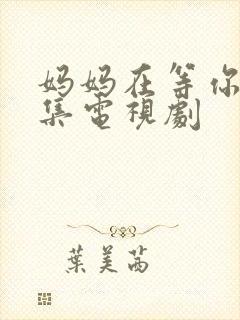 妈妈在等你
集电視劇
葉美茜